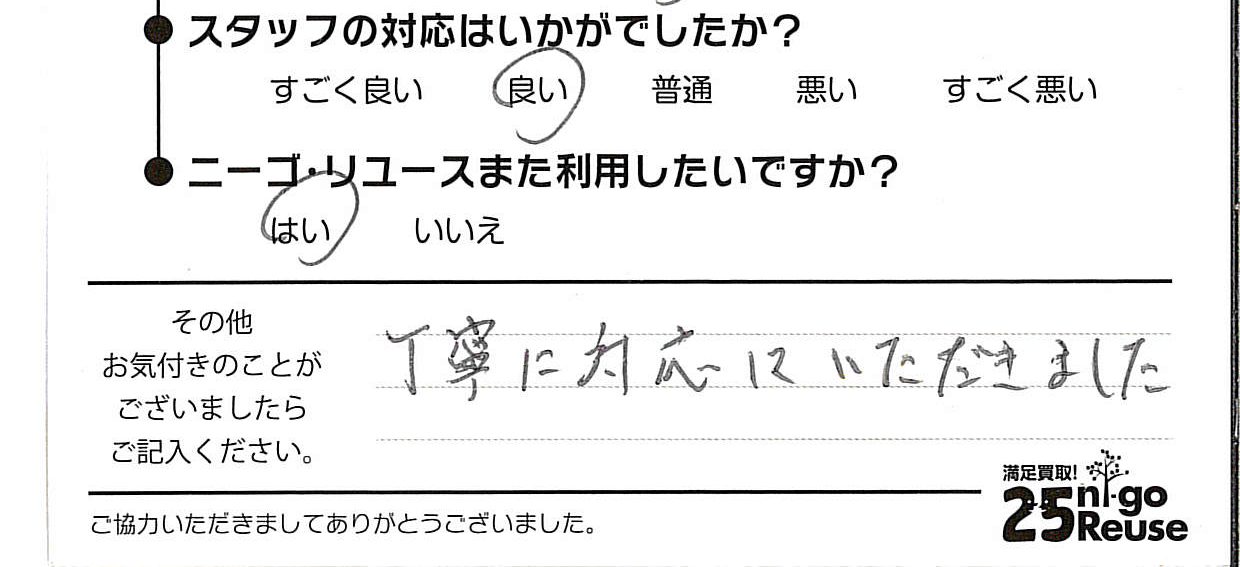 スタッフの対応はいかがでしたか?
すごく良い 良い 普通 悪い すごく悪い
ニーゴ・リユースまた利用したいですか?
はい いいえ
その他
お気付きのことが
ございましたら
ご記入ください。
丁寧に対応していただきました
ご協力いただきましてありがとうございました。
満足買取!
25 ni-go
Reuse